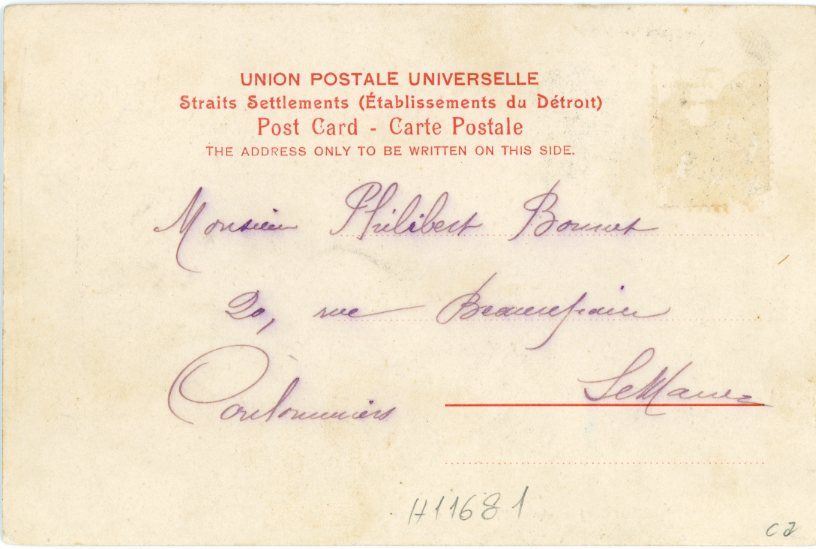 UNION POSTALE UNIVERSELLE
Straits Settlements (Établissements du Détroit)
Post Card - Carte Postale
THE ADDRESS ONLY TO BE WRITTEN ON THIS SIDE.
Monsieur Philibert Bonnet
20, rue
Le Mans
H11681